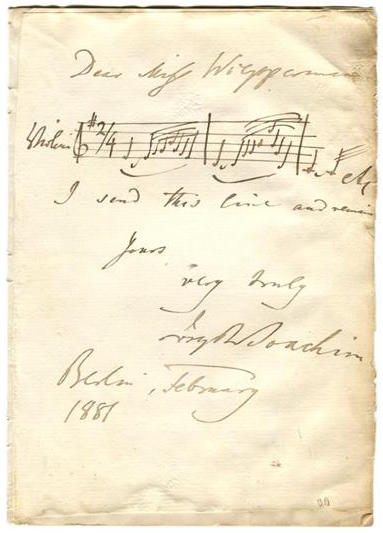 Dear Miss Wiepperman
Violin 2/4 etc
I send this line and remain
Yours
very truly
Joseph Joachim
Berlin, February
1881